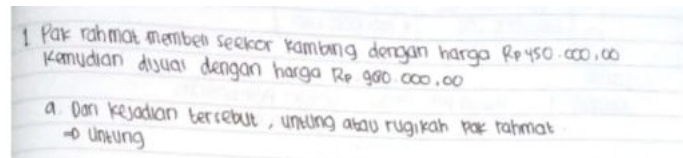 1 Pak rahmat membeli seekor kambing dengan harga Rp 450.000,00
Kemudian dijual dengan harga Rp 900.000,00
a. Dari kejadian tersebut, untung atau rugikah pak rahmat.
→ Untung